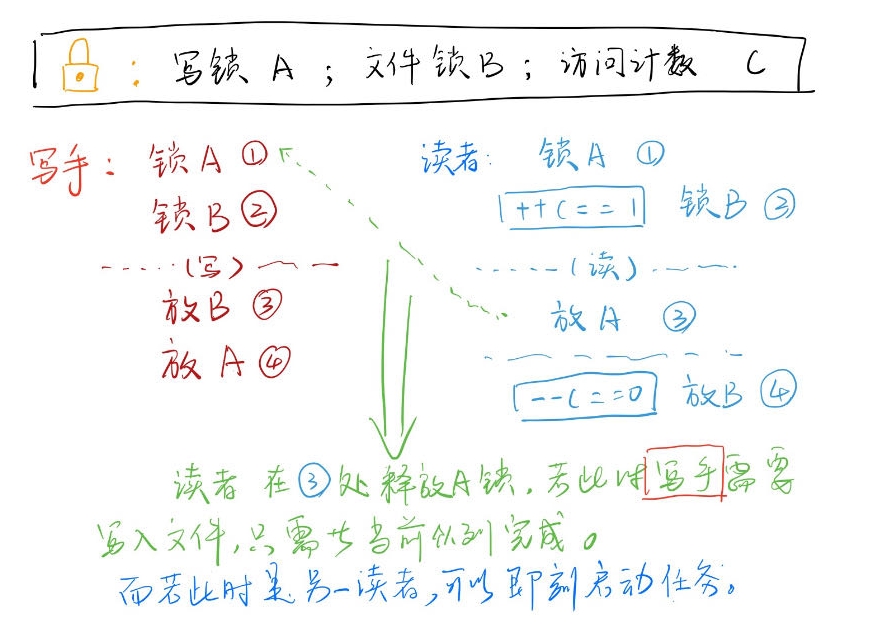 : 写锁 A ; 文件锁B ; 访问计数 C
写手: 锁A ①
锁B ②
-----(写)-----
放B ③
放A ④
读者: 锁A ①
++C==1 锁B ②
-----(读)-----
放A ③
--C==0 放B ④
读者在③处释放A锁,若此时写手需要
写入文件,只需 当前队列完成。
而若此时是另一读者,可以即刻启动任务。